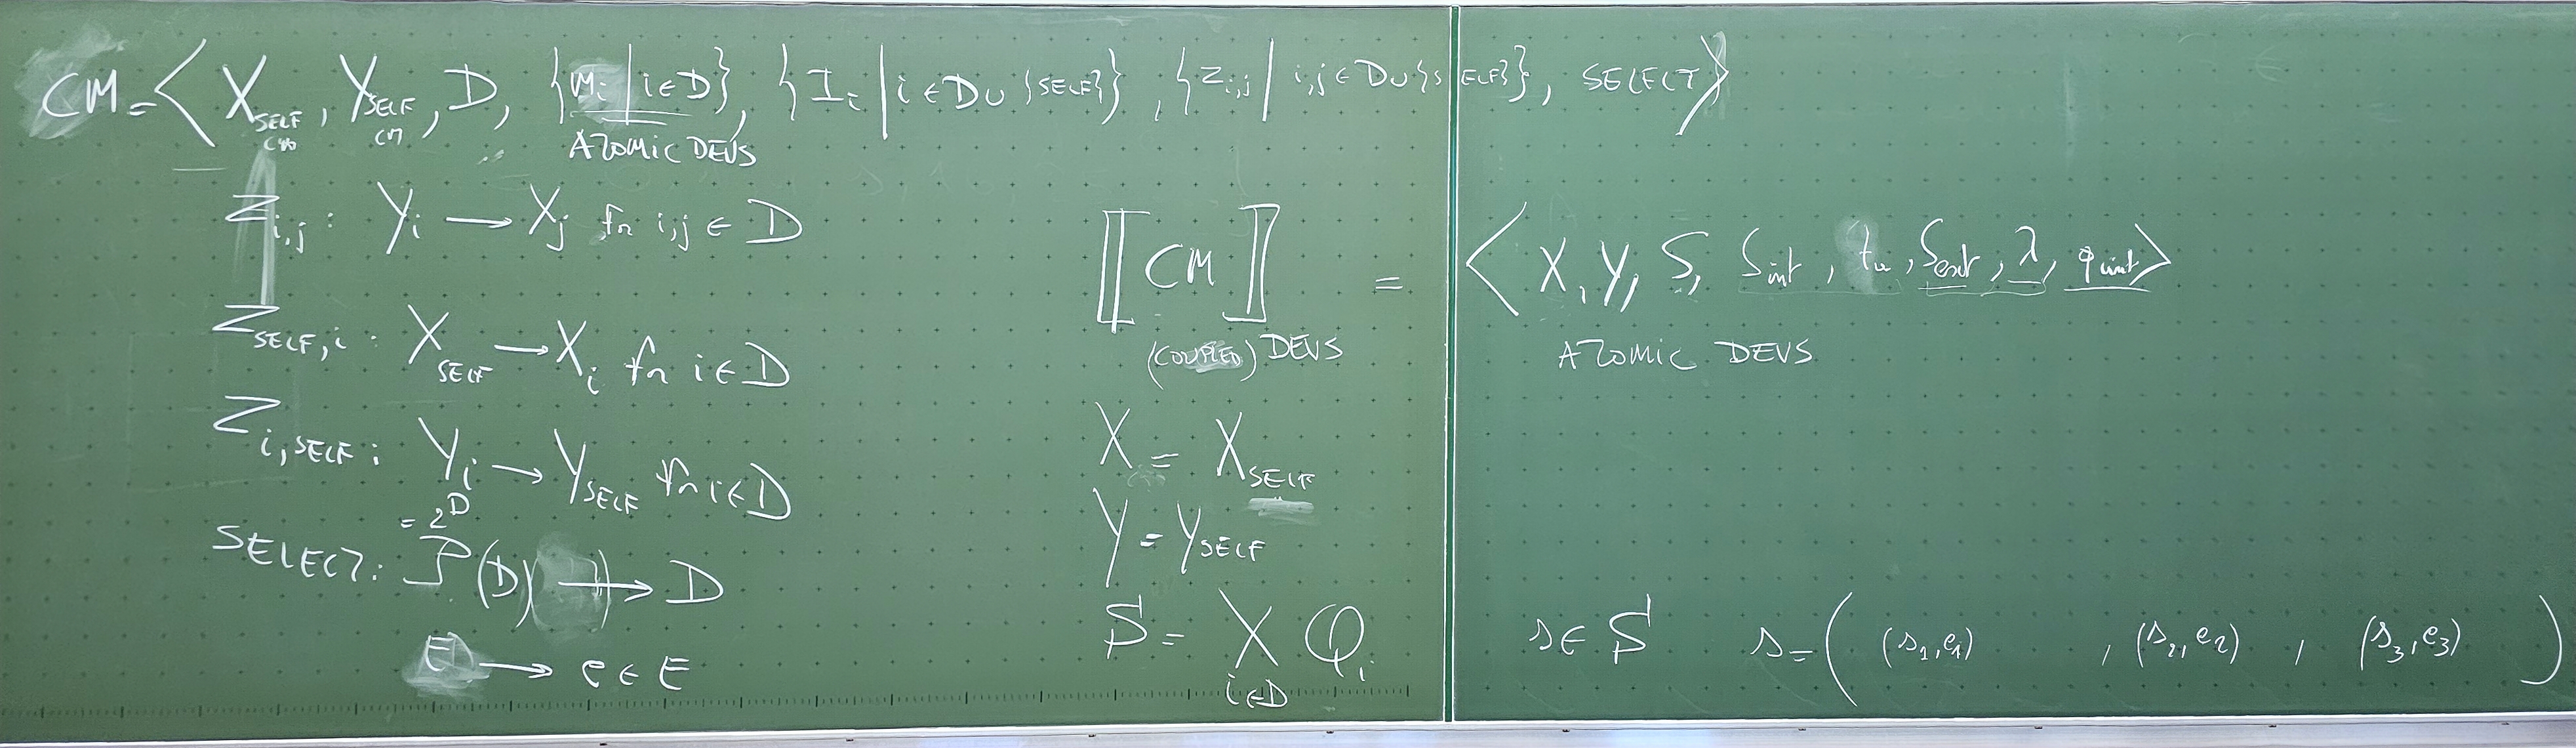 CM = < X_SELF, Y_SELF, D, {M_i | i ∈ D}, {I_i | i ∈ D ∪ {SELF}}, {Z_i,j | i,j ∈ D ∪ {SELF}}, SELECT >
CM CM
ATOMIC DEVS
Z_i,j : Y_i → X_j for i,j ∈ D
Z_SELF,i : X_SELF → X_i for i ∈ D
Z_i,SELF : Y_i → Y_SELF for i ∈ D
= 2^D
SELECT: P(D) → D
E → e ∈ E
⟦CM⟧ = < X, Y, S, δ_int, ta, δ_ext, λ, q_init >
(COUPLED) DEVS
ATOMIC DEVS
X = X_SELF
Y = Y_SELF
S = X_{i∈D} Q_i
s ∈ S s = ( (s_1, e_1) , (s_2, e_2) , (s_3, e_3) )